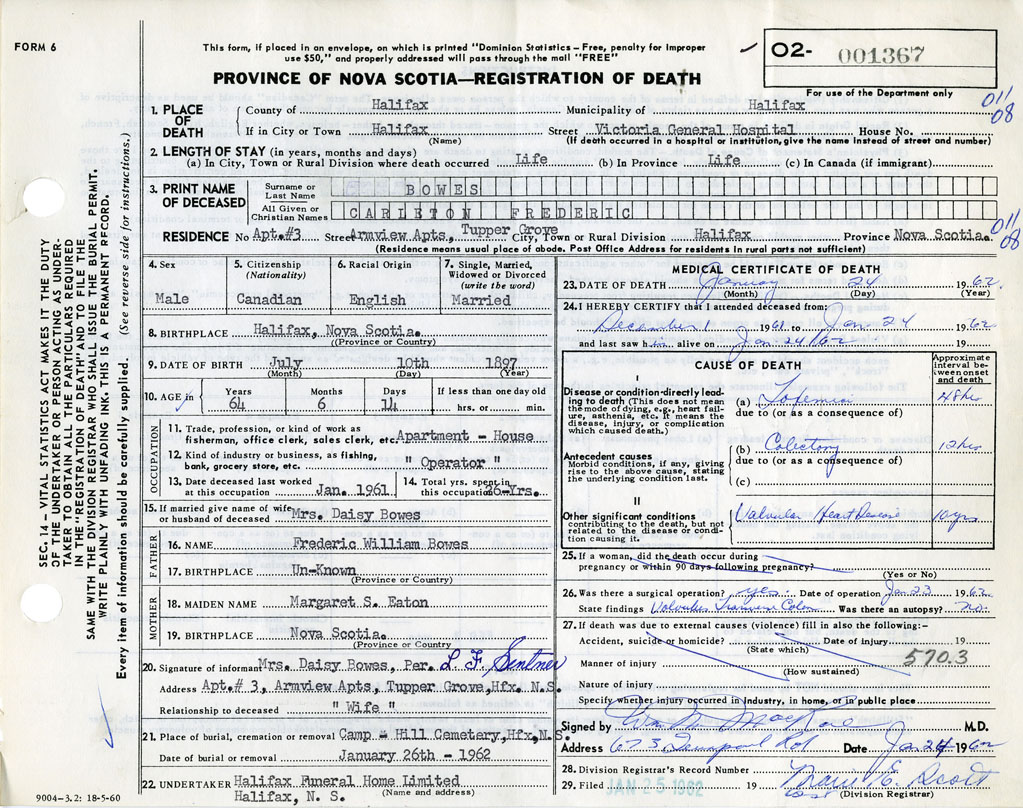 FORM 6
This form, if placed in an envelope, on which is printed "Dominion Statistics – Free, penalty for improper
use $50," and properly addressed will pass through the mail "FREE"
PROVINCE OF NOVA SCOTIA—REGISTRATION OF DEATH
02- 001367
For use of the Department only
011/08
1. PLACE OF DEATH { County of Halifax Municipality of Halifax
If in City or Town Halifax Street Victoria General Hospital House No.
(Name) (If death occurred in a hospital or institution, give the name instead of street and number)
2. LENGTH OF STAY (in years, months and days)
(a) In City, Town or Rural Division where death occurred Life (b) In Province Life (c) In Canada (if immigrant)
3. PRINT NAME OF DECEASED
Surname or Last Name BOWES
All Given or Christian Names CARLETON FREDERIC
011/08
RESIDENCE No Apt.#3 Street Armview Apts, Tupper Grove City, Town or Rural Division Halifax Province Nova Scotia.
(Residence means usual place of abode. Post Office Address for residents in rural parts not sufficient)
4. Sex 5. Citizenship (Nationality) 6. Racial Origin 7. Single, Married, Widowed or Divorced (write the word)
Male Canadian English Married
8. BIRTHPLACE Halifax, Nova Scotia.
(Province or County)
9. DATE OF BIRTH July 10th 1897
(Month) (Day) (Year)
10. AGE in Years Months Days If less than one day old
64 6 14 hrs. or min.
OCCUPATION
11. Trade, profession, or kind of work as
fisherman, office clerk, sales clerk, etc. Apartment - House
12. Kind of industry or business, as fishing,
bank, grocery store, etc. " Operator "
13. Date deceased last worked at this occupation Jan. 1961
14. Total yrs. spent in this occupation 26-Yrs.
15. If married give name of wife or husband of deceased Mrs. Daisy Bowes
FATHER
16. NAME Frederic William Bowes
17. BIRTHPLACE Un-Known
(Province or Country)
MOTHER
18. MAIDEN NAME Margaret S. Eaton
19. BIRTHPLACE Nova Scotia.
(Province or Country
20. Signature of informant Mrs. Daisy Bowes, Per. L F. Sentner
Address Apt.# 3, Armview Apts, Tupper Grove, Hfx. N.S.
Relationship to deceased " Wife "
21. Place of burial, cremation or removal Camp - Hill Cemetery, Hfx, N.S.
Date of burial or removal January 26th - 1962
22. UNDERTAKER Halifax Funeral Home Limited
Halifax, N. S. (Name and address)
9004-3.2: 18-5-60
MEDICAL CERTIFICATE OF DEATH
23. DATE OF DEATH January 24 1962
(Month) (Day) (Year)
24. I HEREBY CERTIFY that I attended deceased from:
December 1 1961 to Jan 24 1962
and last saw him alive on Jan 24/62 19
CAUSE OF DEATH
Approximate interval between onset and death
I
Disease or condition directly leading to death (This does not mean the mode of dying, e.g., heart failure, asthenia, etc. It means the disease, injury, or complication which caused death.)
(a) Toxemia 48 hrs
due to (or as a consequence of)
Antecedent causes
Morbid conditions, if any, giving rise to the above cause, stating the underlying condition last.
(b) Colectomy 12 hrs
due to (or as a consequence of)
(c)
II
Other significant conditions
contributing to the death, but not related to the disease or condition causing it.
Valvular Heart Disease 10 yrs
25. If a woman, did the death occur during
pregnancy or within 90 days following pregnancy?
(Yes or No)
26. Was there a surgical operation? yes Date of operation Jan 23 1962
State findings Volvulus Transverse Colon Was there an autopsy? no.
27. If death was due to external causes (violence) fill in also the following:-
Accident, suicide or homicide? Date of injury 19
(State which)
570.3
Manner of injury
(How sustained)
Nature of injury
Specify whether injury occurred in industry, in home, or in public place
Signed by M.D.
Address 673 Date Jan 24 1962
28. Division Registrar's Record Number
29. Filed JAN 25 1962 19 Marie E. Scott
(Division Registrar)
SEC. 14 – VITAL STATISTICS ACT MAKES IT THE DUTY
OF THE UNDERTAKER OR PERSON ACTING AS UNDER-
TAKER TO OBTAIN ALL THE PARTICULARS REQUIRED
IN THE "REGISTRATION OF DEATH" AND TO FILE THE
SAME WITH THE DIVISION REGISTRAR WHO SHALL ISSUE THE BURIAL PERMIT.
WRITE PLAINLY WITH UNFADING INK. THIS IS A PERMANENT RECORD.
Every item of information should be carefully supplied. (See reverse side for instructions.)